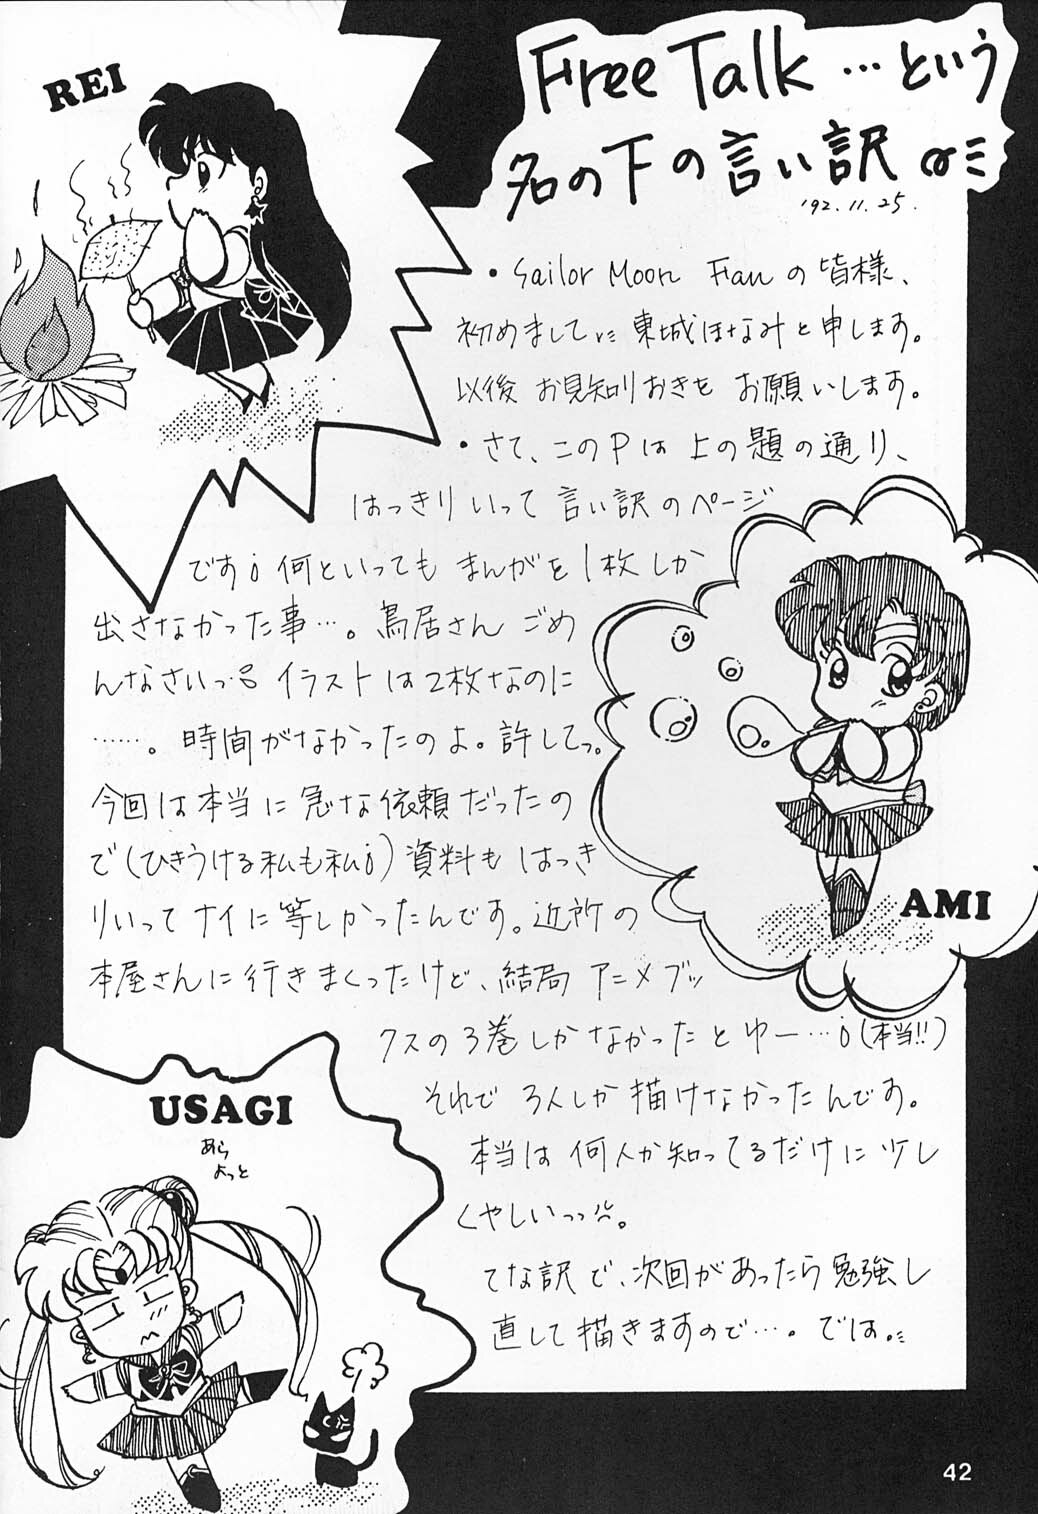 REI
Free Talk …という
名の下の言い訳
'92.11.25.
・Sailor Moon Fanの皆様、
初めまして 東城ほなみと申します。
以後 お見知りおきを お願いします。
・さて、このPは 上の題の通り、
はっきりいって 言い訳のページ
です 何といっても まんがを1枚しか
出さなかった事…。鳥居さん ごめ
んなさいっ イラストは2枚なのに
……。時間がなかったのよ。許してっ。
今回は本当に急な依頼だったの
で(ひきうける私も私)資料も はっき
りいって ナイに等しかったんです。近所の
本屋さんに行きまくったけど、結局 アニメブッ
クスの3巻しかなかったとゆー…(本当!!)
それで 3人しか描けなかったんです。
本当は 何人か知ってるだけに 少し
くやしいっっ。
てな訳で、次回があったら勉強し
直して描きますので…。では。
AMI
USAGI
あら
よっと
42